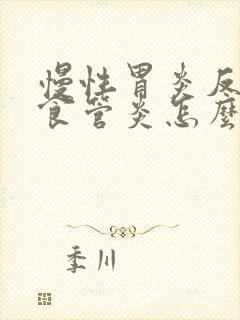 慢性胃炎反
食管炎怎麼
季川